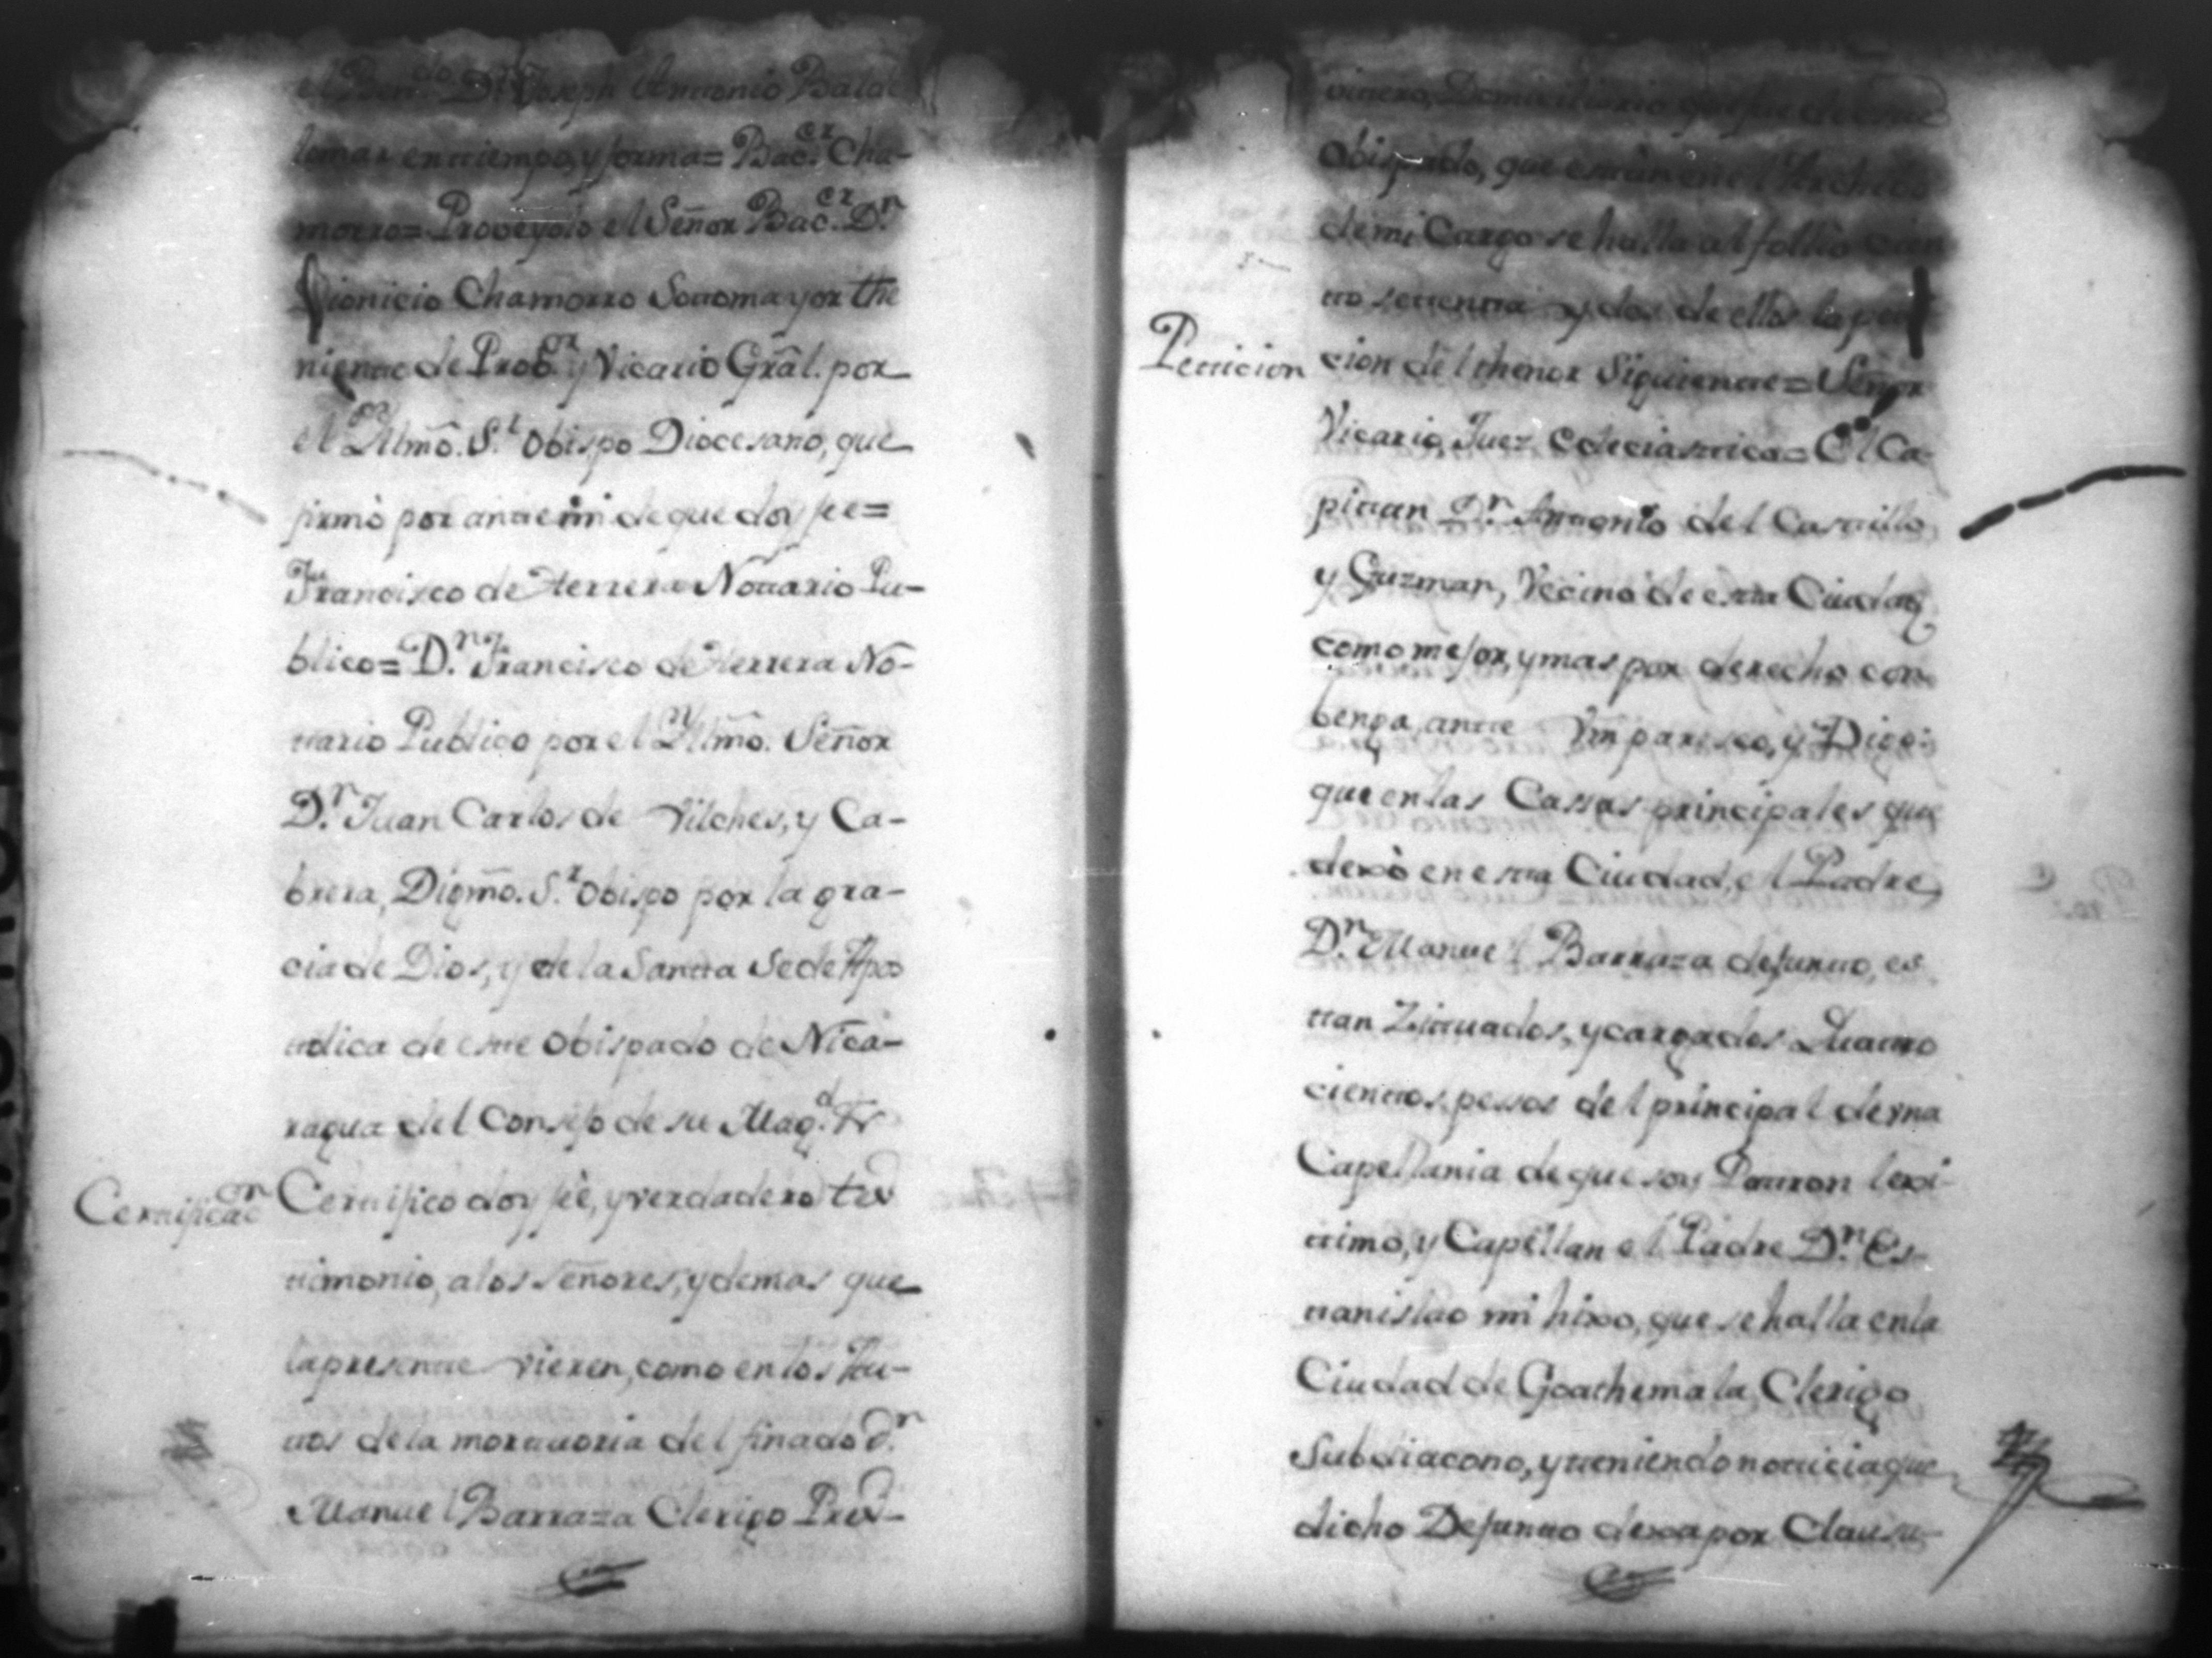 el Ben.do D.n Joseph Antonio Balde
lomar en tiempo, y forma = Bac.er Cha-
morro = Proveyolo el Señor Bac.er D.n
Dionicio Chamorro Sottomayor the
niente de Prob.or y Vicario Gral. por
el Yllmô. S.r Obispo Diocesano, que
firmò por ante mi de que doy fee =
Francisco de Herrera Nottario Pu-
blico = D.n Francisco de Herrera No-
ttario Publico por el Yllmô. Señor
D.n Juan Carlos de Vilches, y Ca-
brera, Digmô. S.r Obispo por la gra-
cia de Dios, y de la Santta Sede Apos
ttolica de este Obispado de Nica-
ragua del Consejo de su Mag.d &.
Certtificac.on
Certtifico doy feè, y verdadero tes
ttimonio, a los señores, y demas que
la presentte vieren, como en los Au-
ttos de la morttuoria del finado d.n
Manuel Barraza Clerigo Presv-
vittero, Domiciliario que fue de este
Obispado, que estan en el Archivo
de mi Cargo se halla al follio cien
tto settentta y dos de ellos la peti
Petticion
cion del thenor Siguientte = Señor
Vicario, Juez Eclesiasttico = El Ca-
pittan D.n Anttonio del Casttillo
y Guzman, Vecino de estta Ciudad,
como mejor, y mas por derecho con
benga, antte Vm paresco, y Digo:
que en las Cassas principales que
dexò en estta Ciudad, el Padre
D.n Manuel Barraza defuntto, es
ttan Zittuados, y cargados Quattro
cienttos pessos del principal de vna
Capellania de que soy Pattron lexi-
ttimo, y Capellan el Padre D.n Es-
ttanislao mi hixo, que se halla en la
Ciudad de Goathemala, Clerigo
Subdiacono, y tteniendo notticia que
dicho Defuntto dexa por Clausu-